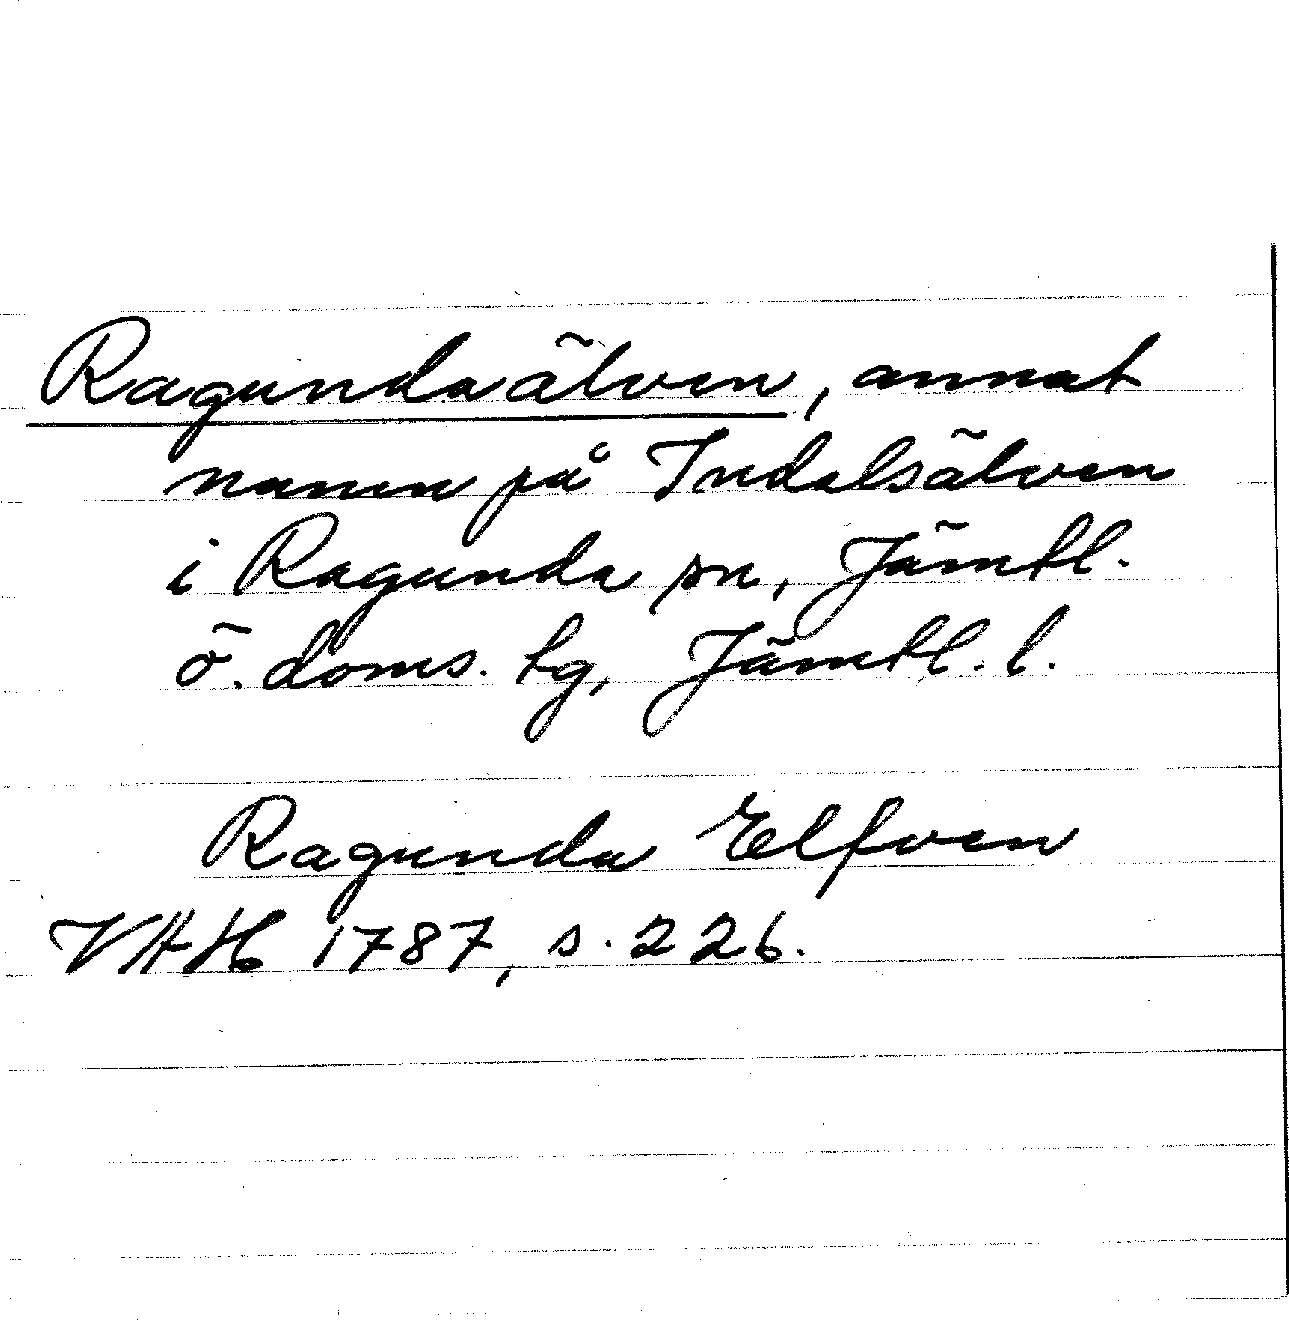 Ragundaälven, annat
namn på Indalsälven
i Ragunda sn, Jämtl.
ö. doms. tg, Jämtl. l.
Ragunda Elfven
VHH 1787, s. 226.